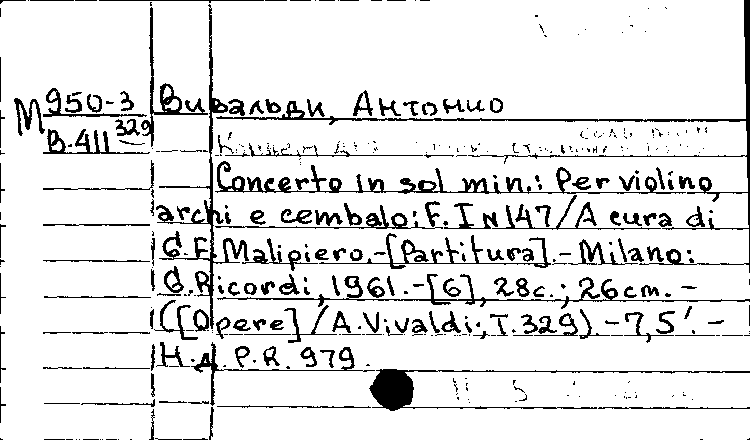 М 950-3 Вивальди, Антонио
В-411 329
Concerto in sol min.: Per violino,
archi e cembalo: F. I N 147 / A cura di
G. F. Malipiero. - [Partitura]. - Milano:
G. Ricordi, 1961. - [6], 28 c.; 26 cm. -
([Opere] / A. Vivaldi; T. 329). - 7,5'. -
Н.д. P. R. 979.